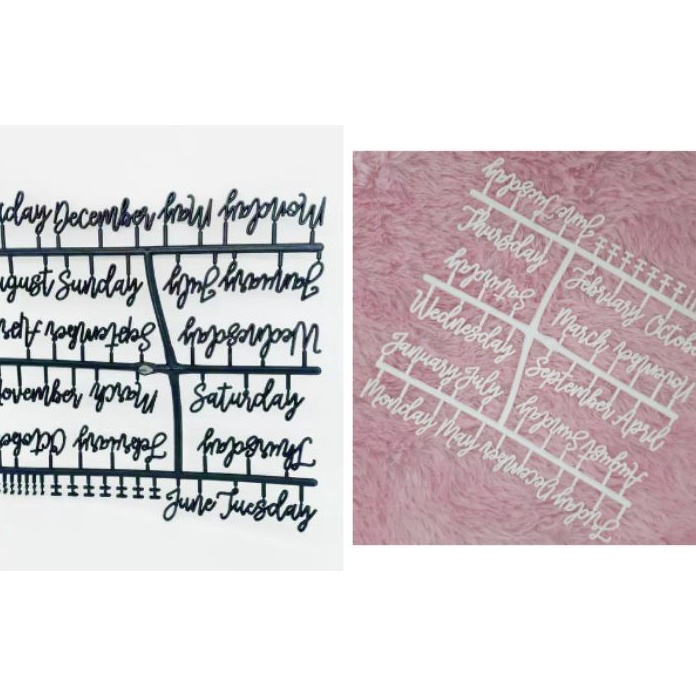 day December May Monday
gust Sunday July January
September Apr Wednesday
ovember March Saturday
Octobe February Thursday
June Tuesday
June Tuesday
Thursday
February Octob
Saturday
March November
Wednesday
September April
January July
August Sunday
Monday May December Friday